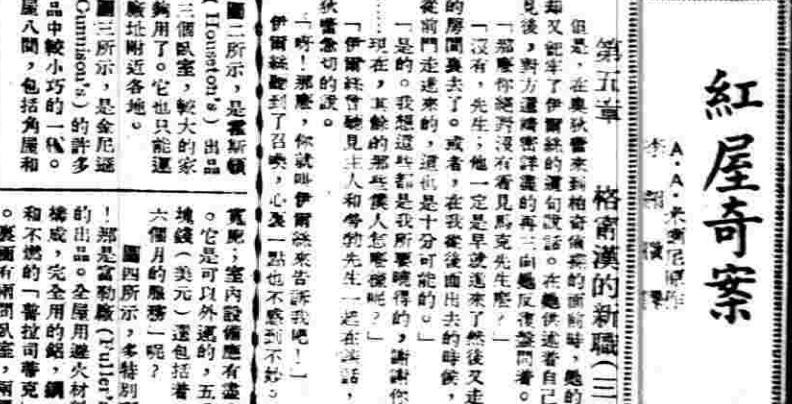 紅屋奇案
A‧A‧米爾尼原作
第五章　格甯漢的新職(三
但是，在奧狄雷來到柏奇偵探的面前時，她的
却又記牢了伊爾絲的這句說話。在她供述着自己
見後，對方還精密詳盡的再三向她反復盤問着。
「那麼你絕對沒有看見馬克先生麼？」
「沒有，先生；他一定是早就進來了然後又走
的房間裏去了。或者，在我從後面出去的時候，
從前門走進來的，這也是十分可能的。」
「是的。我想這些都是我所要曉得的，謝謝你
……現在，其餘的那些僕人怎麼樣呢？」
「伊爾絲曾聽見主人和勞勃先生一起在談話，
狄雷急切的說。
「呀！那麼，你就叫伊爾絲來告訴我吧！」
伊爾絲聽到了召喚，心裏一點也不感到不妙。
圖二所示，是霍斯頓
(Houston's) 出品
三個臥室，較大的家
夠用了。它也只能運
廠址附近各地。
圖三所示，是金尼遜
Cunnison's) 的許多
品中較小巧的一種。
屋八間，包括角屋和
寬敞；室內設備應有盡
。它是可以外運的，五
塊錢（美元）還包括着
六個月的服務」呢？
圖四所示，多特別
！那是富勒廠(Fuller's
的出品。全屋用避火材料
構成，完全用的鋁，鋼
和不燃的「普拉司蒂克
。裏面有兩間臥室，兩